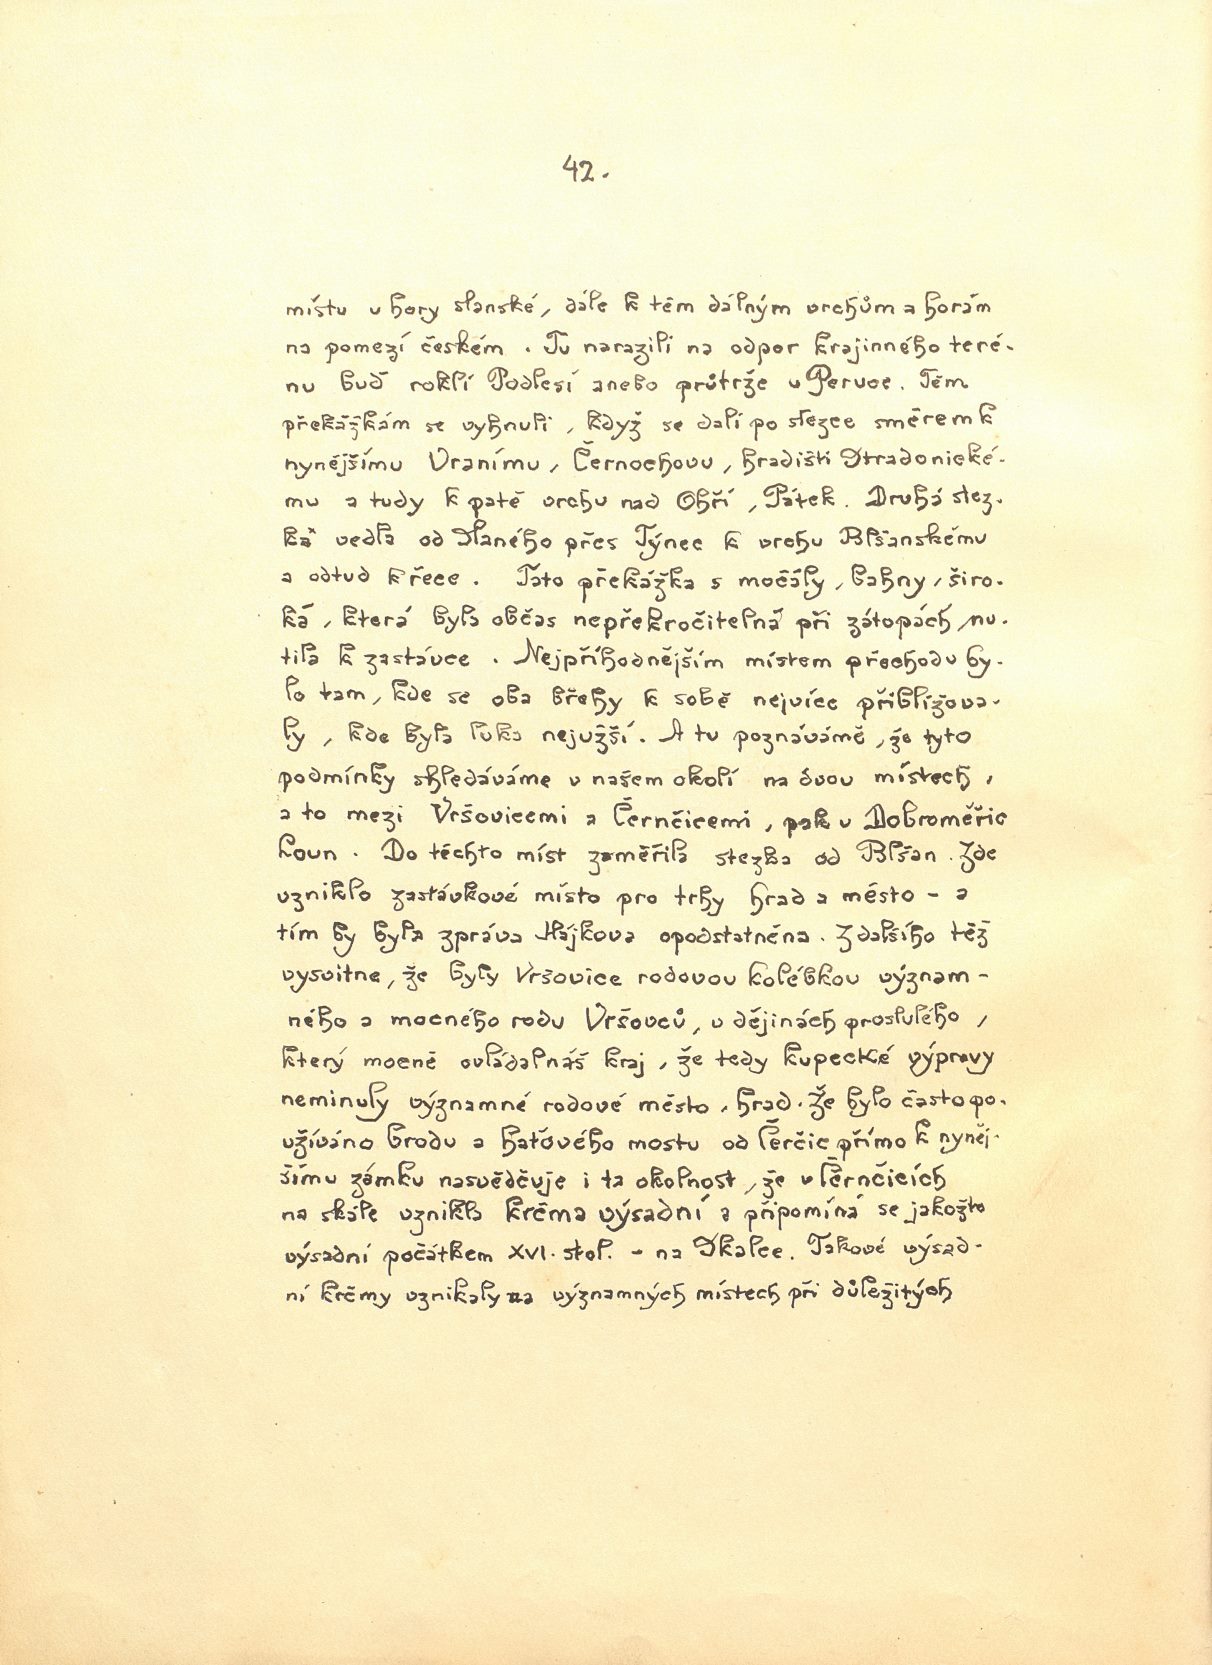 42.
místu u hory slanské, dále k těm dálným vrchům a horám
na pomezí českém . Tu narazili na odpor krajinného teré-
nu buď roklí Podlesí anebo průtrže u Peruce. Těm
překážkám se vyhnuli , když se dali po stezce směrem k
nynějšímu Vranímu, Černochovu, hradišti Stradonické-
mu a tudy k patě vrchu nad Ohří , Pátek. Druhá stez-
ka vedla od Slaného přes Týnec k vrchu Blšanskému
a odtud k řece . Tato překážka s močály , bahny , širo-
ká , která byla občas nepřekročitelná při zátopách ,nu-
tila k zastávce . Nejpříhodnějším místem přechodu by-
lo tam, kde se oba břehy k sobě nejvíce přibližova-
ly , kde byla luka nejužší . A tu poznáváme , že tyto
podmínky shledáváme v našem okolí na dvou místech ,
a to mezi Vršovicemi a Černčicemi , pak u Dobroměřic
Loun . Do těchto míst zaměřila stezka od Blšan . Zde
vzniklo zastávkové místo pro trhy hrad a město - a
tím by byla zpráva Hájkova opodstatněna . Z dalšího též
vysvitne, že byly Vršovice rodovou kolébkou význam -
ného a mocného rodu Vršovců, v dějinách proslulého ,
který mocně ovládal náš kraj , že tedy kupecké výpravy
neminuly významné rodové město , hrad . Že bylo často po-
užíváno brodu a haťového mostu od Čerčic přímo k nyněj-
šímu zámku nasvědčuje i ta okolnost , že v Černčicích
na skále vznikla krčma výsadní a připomíná se jakožto
výsadní počátkem XVI. stol. - na Skalce. Takové výsad-
ní krčmy vznikaly na významných místech při důležitých